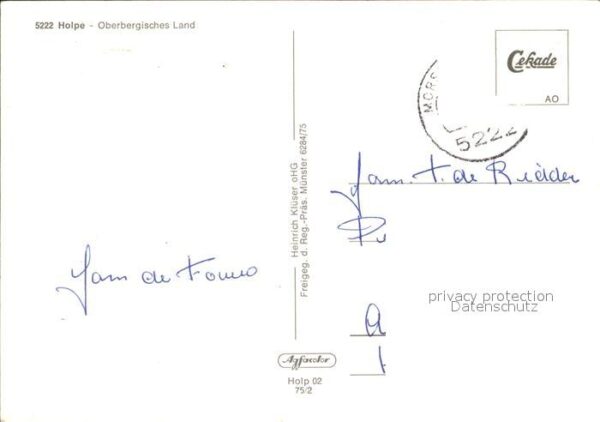 5222 Holpe - Oberbergisches Land
Cekade
AO
MORS
5222
Fam. T. de Ridder
Fam de
Heinrich Klüser oHG
Freigeg. d. Reg.-Präs. Münster 6284/75
privacy protection
Datenschutz
Agfacolor
Holp 02
75/2